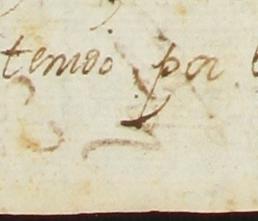 tenido por